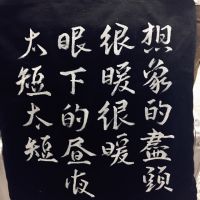 想象的盡頭
很暖很暖
眼下的昼夜
太短太短